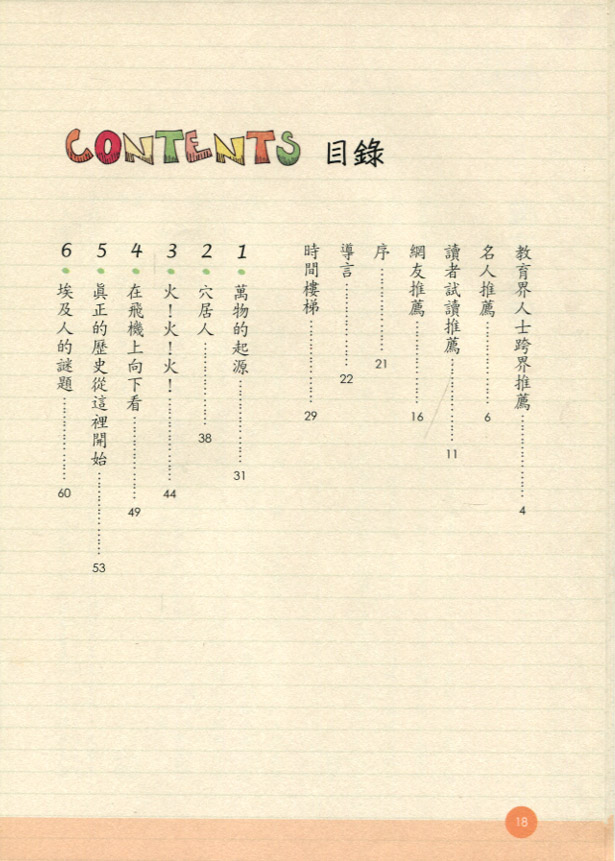 CONTENTS 目錄
教育界人士跨界推薦…………4
名人推薦…………6
讀者試讀推薦…………11
網友推薦…………16
序…………21
導言…………22
時間樓梯…………29
1•萬物的起源…………31
2•穴居人…………38
3•火!火!火!…………44
4•在飛機上向下看…………49
5•真正的歷史從這裡開始…………53
6•埃及人的謎題…………60
18